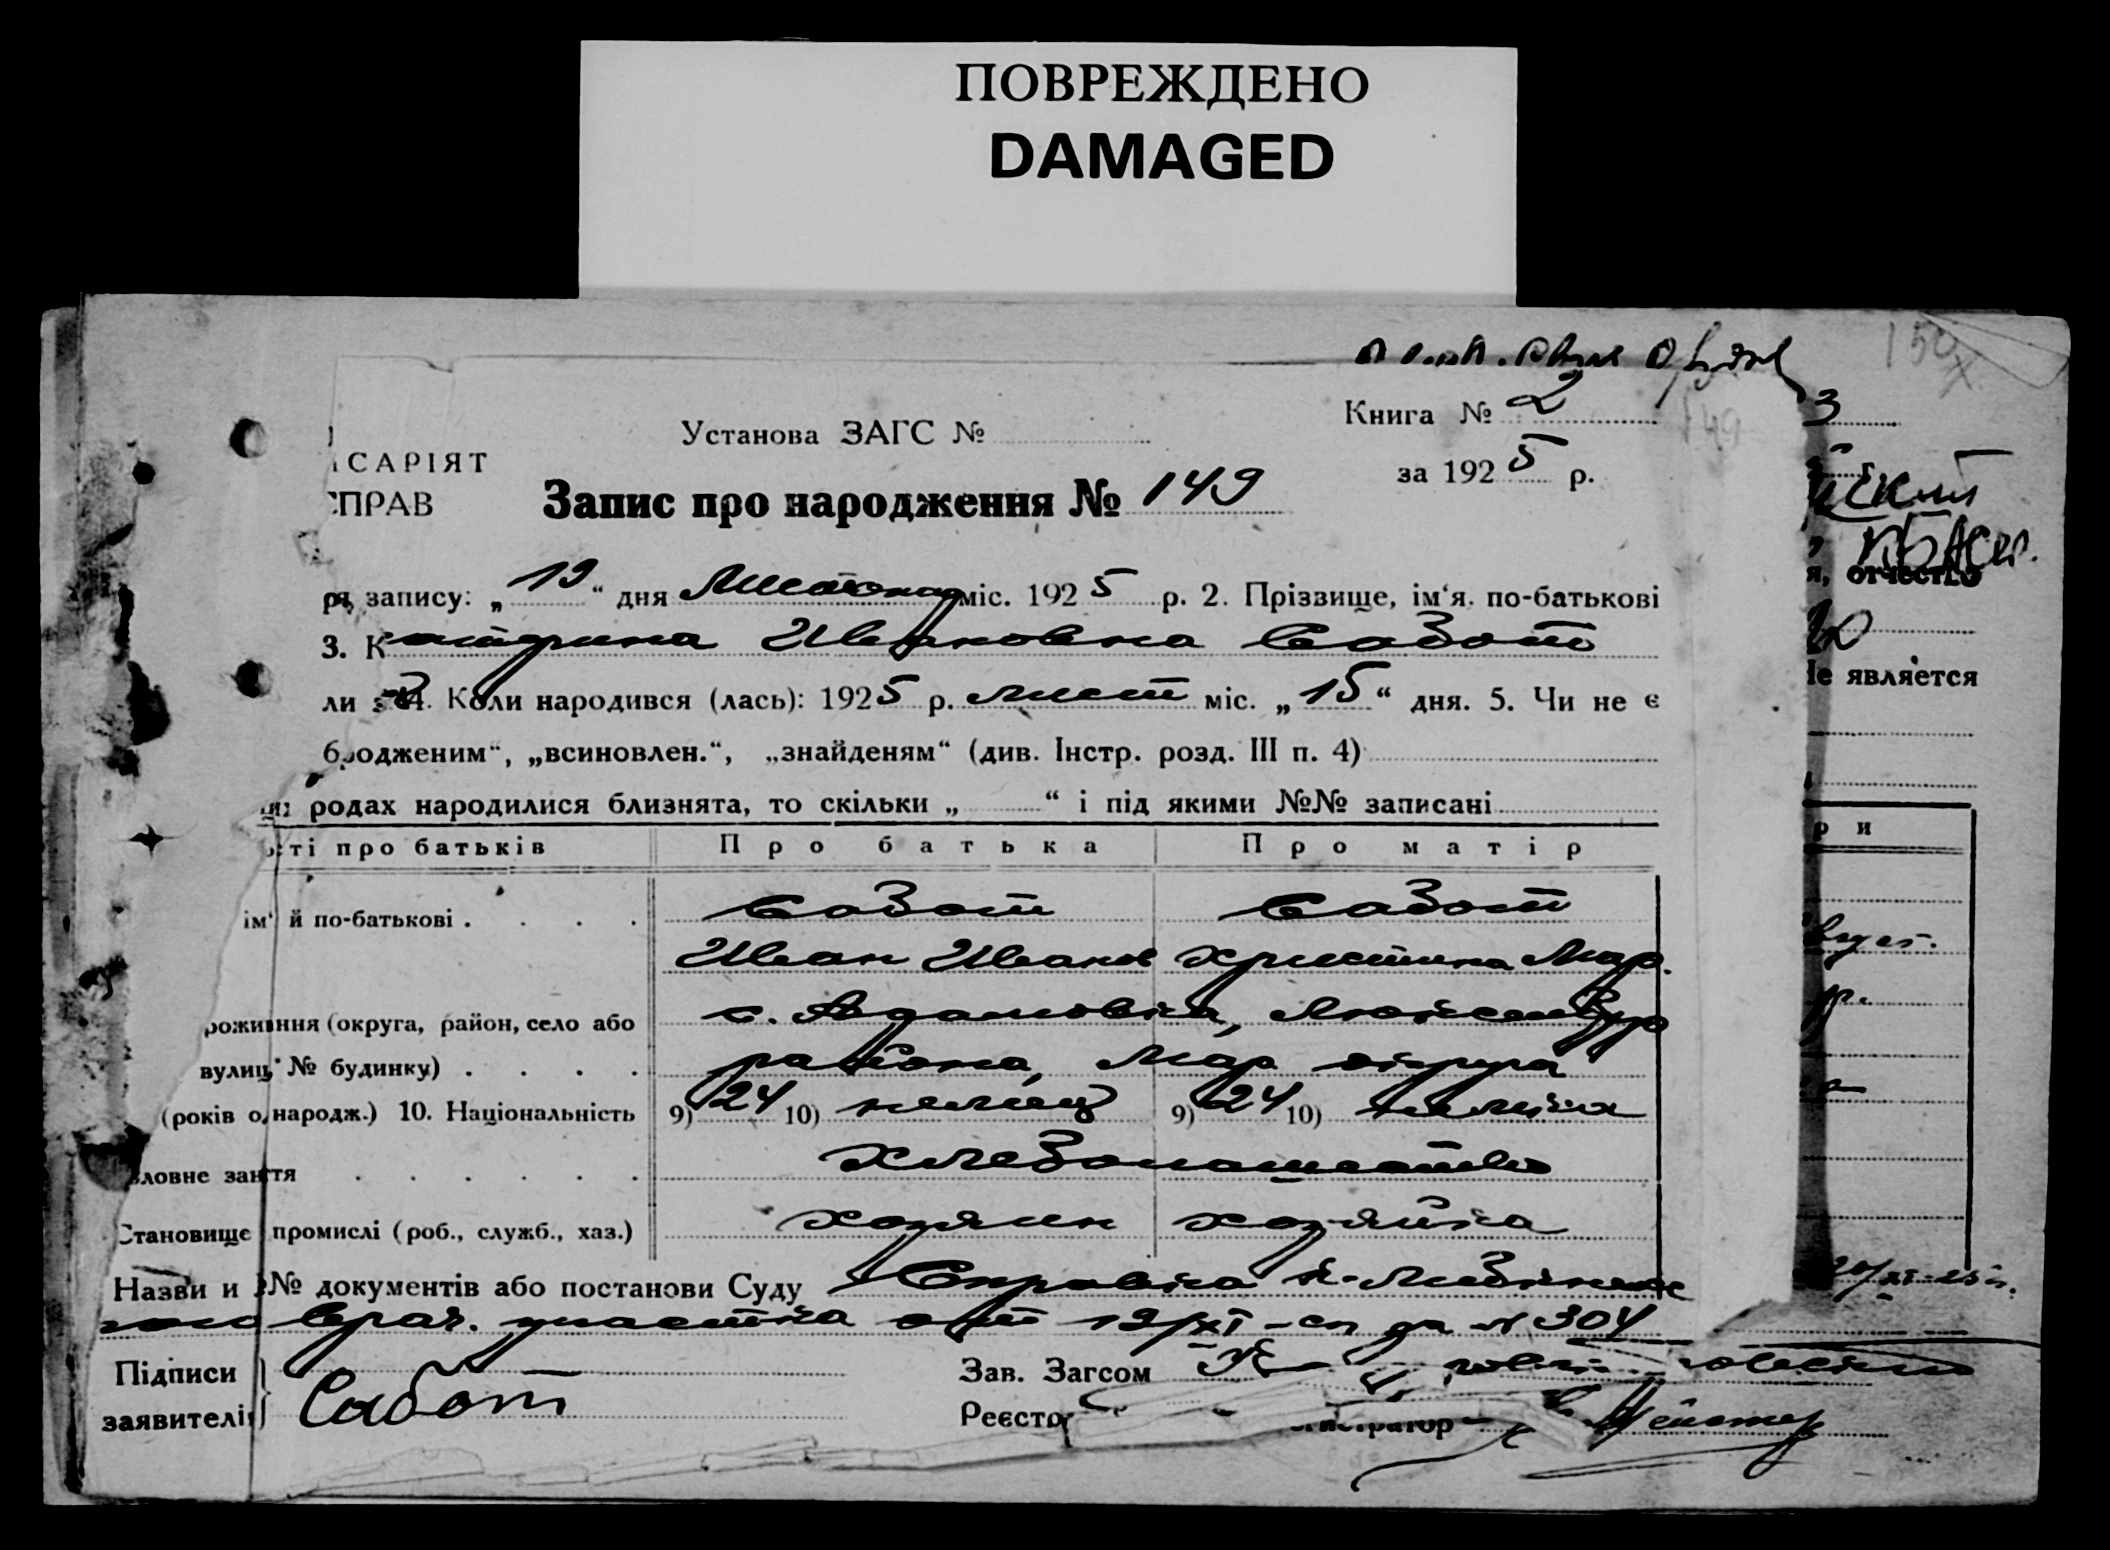 ПОВРЕЖДЕНО
DAMAGED
150
Установа ЗАГС №
Книга № 2
149
3
САРІЯТ
за 1925 р.
СПРАВ
Запис про народження № 149
ря запису: „19“ дня Листопад міс. 1925 р. 2. Прізвище, ім‘я, по-батькові
я, отчество
3. Катерина Ивановна Сабот
ли 4. Коли народився (лась): 1925 р. лист міс. „15“ дня. 5. Чи не є
Не является
родженим“, „всиновлен.“, „знайденям“ (див. Інстр. розд. III п. 4)
родах народилися близнята, то скільки „ “ і під якими №№ записані
ості про батьків Про батька Про матір
ри
ім‘ й по-батькові . . . . Сабот Сабот
Иван Иванов Христина Мар.
роживання (округа, район, село або с. Адамовка, Люксембур
вулиц № будинку) . . . . района, Мар округа
(років о народж.) 10. Національність 9) 24 10) немец 9) 24 10) немка
ловне заняття . . . . . . Хлебопашество
Становище промислі (роб., служб., хаз.) хозяин хозяйка
Назви и №№ документів або постанови Суду Справка
врач. участка от 19/XI-25 да № 304
Підписи
заявителів
Сабот
Зав. Загсом
Реєстр
істратор